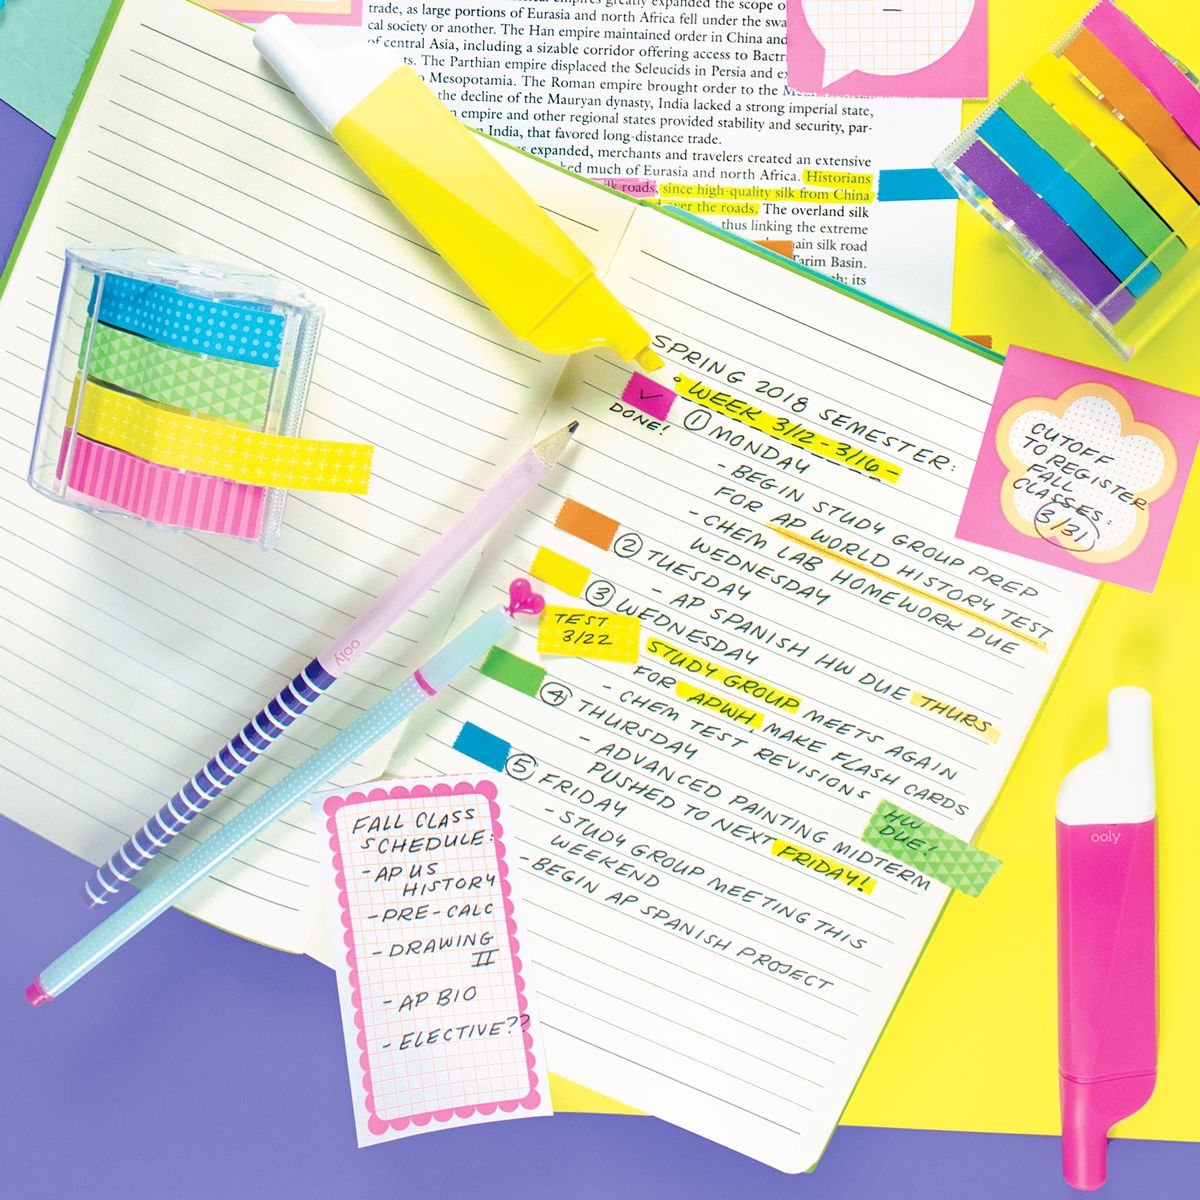 empires greatly expanded the scope o
trade, as large portions of Eurasia and north Africa fell under the swa
cal society or another. The Han empire maintained order in China and
of central Asia, including a sizable corridor offering access to Bactri
ts. The Parthian empire displaced the Seleucids in Persia and ex
o Mesopotamia. The Roman empire brought order to the
the decline of the Mauryan dynasty, India lacked a strong imperial state,
n empire and other regional states provided stability and security, par-
n India, that favored long-distance trade.
s expanded, merchants and travelers created an extensive
ked much of Eurasia and north Africa. Historians
ilk roads, since high-quality silk from China
d over the roads. The overland silk
thus linking the extreme
ain silk road
Tarim Basin.
its
SPRING 2018 SEMESTER:
• WEEK 3/12 - 3/16 -
✓
DONE!
① MONDAY
- BEGIN STUDY GROUP PREP
FOR AP WORLD HISTORY TEST
- CHEM LAB HOMEWORK DUE
WEDNESDAY
② TUESDAY
- AP SPANISH HW DUE THURS
③ WEDNESDAY
TEST
3/22
STUDY GROUP MEETS AGAIN
FOR APWH, MAKE FLASH CARDS
- CHEM TEST REVISIONS
④ THURSDAY
- ADVANCED PAINTING MIDTERM
PUSHED TO NEXT FRIDAY!
HW
DUE!
⑤ FRIDAY
- STUDY GROUP MEETING THIS
WEEKEND
- BEGIN AP SPANISH PROJECT
CUTOFF
TO REGISTER
FALL
CLASSES:
3/31
FALL CLASS
SCHEDULE:
- AP US
HISTORY
- PRE-CALC
- DRAWING
II
- AP BIO
- ELECTIVE??
ooly
ooly